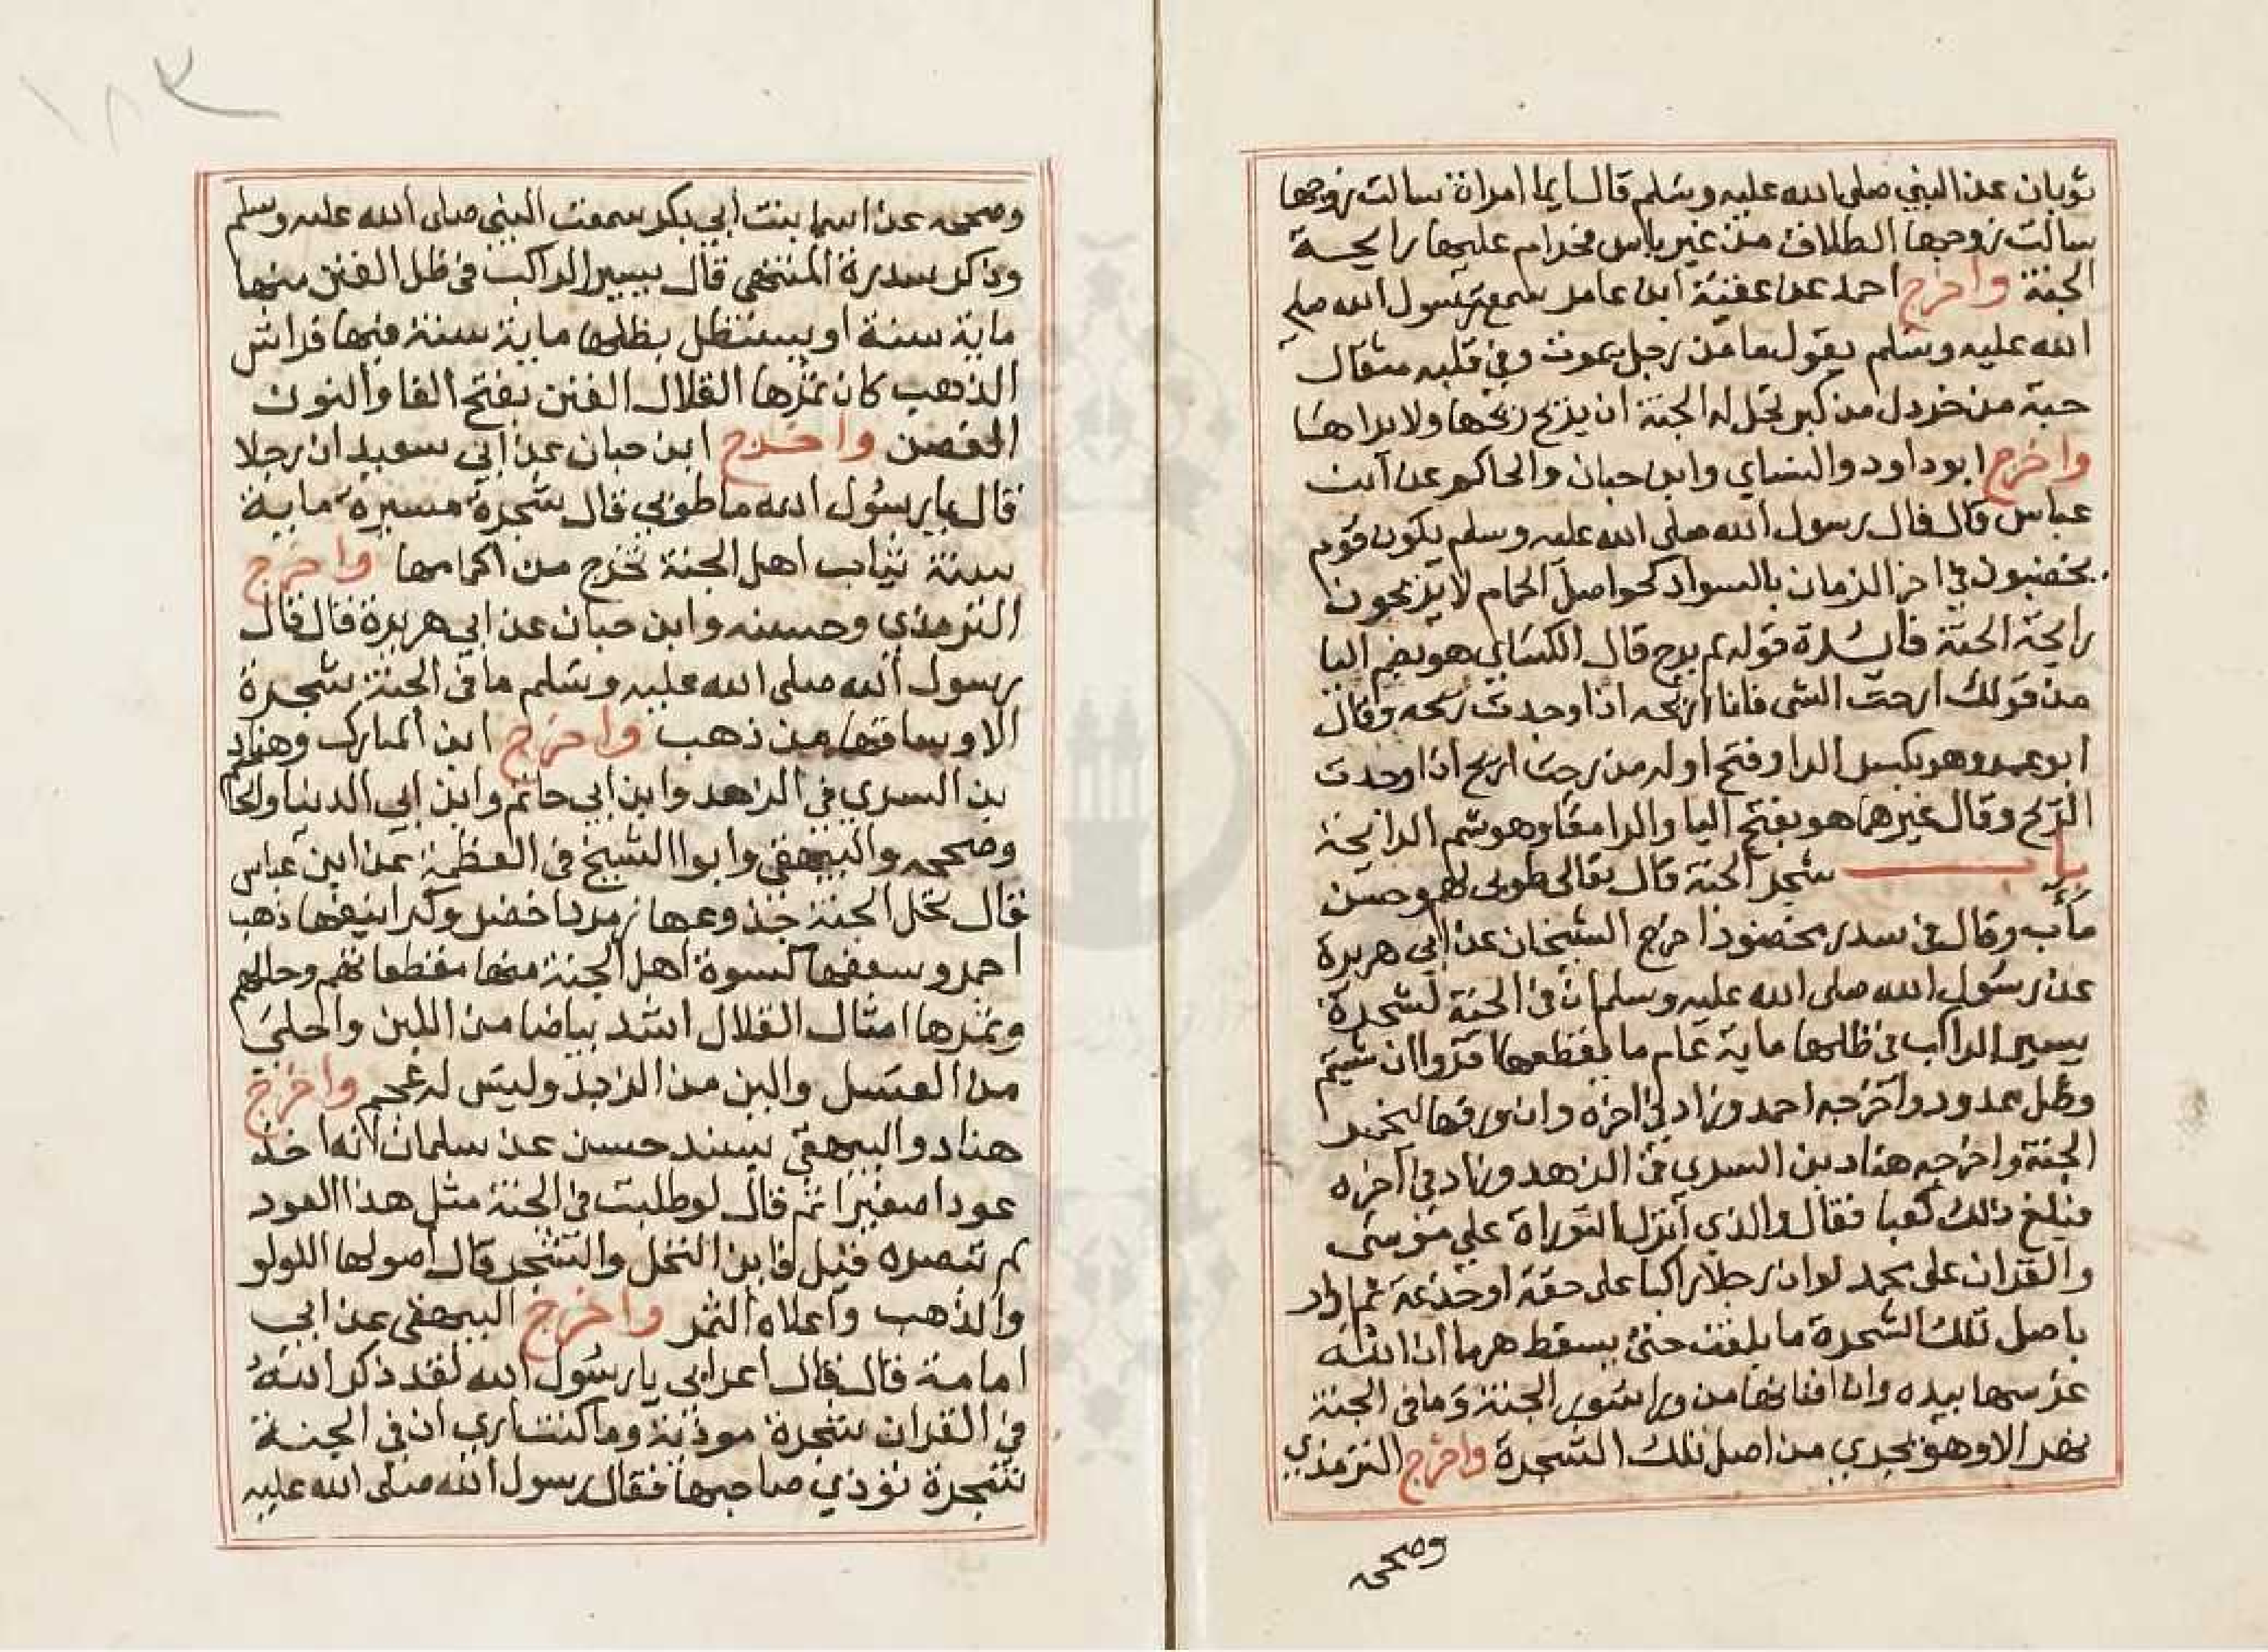 ثوبان عن النبي صلى الله عليه وسلم قال ايما امراة سالت زوجها
سالت زوجها الطلاق من غير باس فحرام عليها رايحة
الجنة واخرج احمد عن عقبة ابن عامر سمعت رسول الله صلى
الله عليه وسلم يقول ما من رجل يموت وفي قلبه مثقال
حبة من خردل من كبر تحل له الجنة ان يريح ريحها ولا يراها
واخرج ابو داود والنساي وابن حبان والحاكم عن ابن
عباس قال قال رسول الله صلى الله عليه وسلم يكون قوم
يخضبون في اخر الزمان بالسواد كحواصل الحمام لا يريحون
رايحة الجنة فايدة قوله لم يرح قال الكساي هو بضم اليا
من قولك ارحت الشي فانا اريحه اذا وجدت ريحه وقال
ابو عمرو هو بكسر الرا وفتح اوله من رحت اريح اذا وجدت
الريح وقال غيرهما هو بفتح اليا والرا معا وهو شم الرايحة
باب شجر الجنة قال تعالى طوبى لهم وحسن
مآب وقال في سدر مخضود اخرج الشيخان عن ابي هريرة
عن رسول الله صلى الله عليه وسلم ان في الجنة لشجرة
يسير الراكب في ظلها ماية عام ما يقطعها اقروا ان شيتم
وظل ممدود واخرجه احمد وزاد في اخره وان ورقها ليخمر
الجنة واخرجه هناد بن السري في الزهد وزاد في آخره
فبلغ ذلك كعبا فقال والذي انزل التوراة على موسى
والقران على محمد لو ان رجلا راكبا على حقة او جذعة ثم دار
باصل تلك الشجرة ما بلغت حتى يسقط هرما ان الله
غرسها بيده وان افنانها من ورا سور الجنة وما في الجنة
نهر الا وهو يجري من اصل تلك الشجرة واخرج الترمذي
وصححه
وصححه عن اسما بنت ابي بكر سمعت النبي صلى الله عليه وسلم
وذكر سدرة المنتهى قال يسير الراكب في ظل الفنن منها
ماية سنة او يستظل بظلها ماية سنة فيها فراش
الذهب كان ثمرها القلال الفنن بفتح الفا والنون
الغصن واخرج ابن حبان عن ابي سعيد ان رجلا
قال يا رسول الله ما طوبي قال شجرة مسيرة ماية
سنة ثياب اهل الجنة تخرج من اكمامها واخرج
الترمذي وحسنه وابن حبان عن ابي هريرة قال قال
رسول الله صلى الله عليه وسلم ما في الجنة شجرة
الا وساقها من ذهب واخرج ابن المبارك وهناد
بن السري في الزهد وابن ابي حاتم وابن ابي الدنيا والحا
وصححه والبيهقي وابوا الشيخ في العظمة عن ابن عباس
قال نخل الجنة جذوعها زمرد اخضر وكرانيفها ذهب
احمر وسعفها كسوة اهل الجنة منها مقطعاتهم وحللهم
وثمرها امثال القلال اشد بياضا من اللبن واحلى
من العسل والين من الزبد وليس له عجم واخرج
هناد والبيهقي بسند حسن عن سلمان انه اخذ
عودا صغيرا ثم قال لو طلبت في الجنة مثل هذا العود
لم تبصره قيل فاين النخل والشجر قال اصولها اللولو
والذهب واعلاه الثمر واخرج البيهقي عن ابي
امامة قال قال اعرابي يا رسول الله لقد ذكر الله
في القران شجرة موذية وما كنت اري ان في الجنة
شجرة توذي صاحبها فقال رسول الله صلى الله عليه